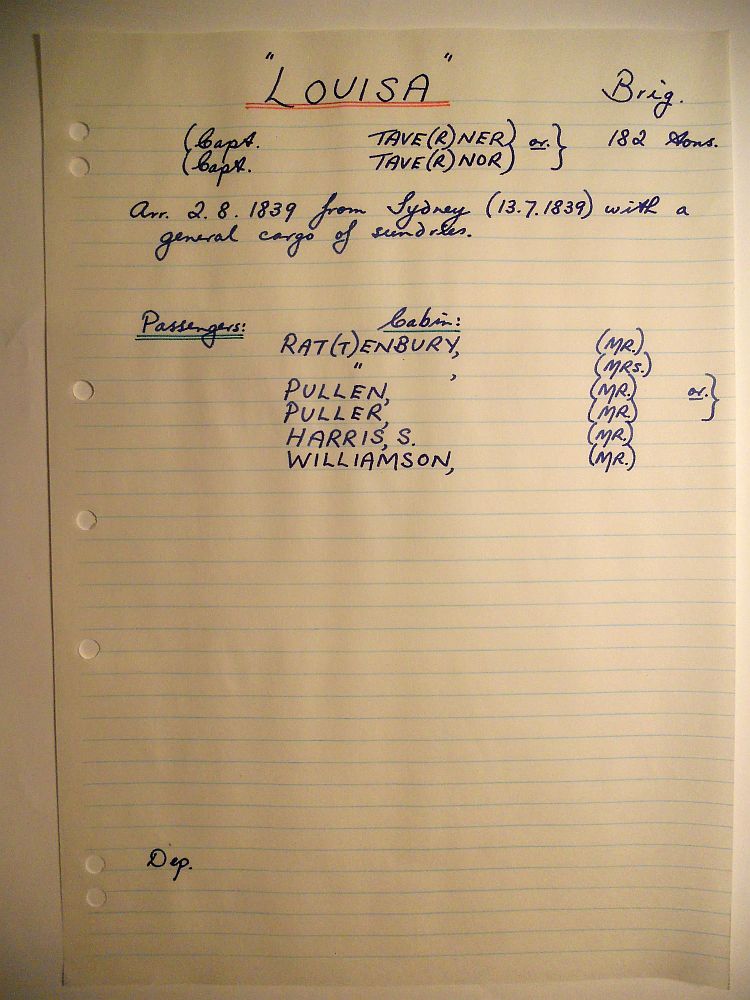 "LOUISA" Brig.
(Capt. TAVE(R)NER) or.} 182 tons.
(Capt. TAVE(R)NOR)
Arr. 2.8.1839 from Sydney (13.7.1839) with a
general cargo of sundries.
Passengers: Cabin:
RAT(T)ENBURY, (MR.)
" , (MRS.)
PULLEN, (MR.) or.}
PULLER, (MR.)
HARRIS, S. (MR.)
WILLIAMSON, (MR.)
Dep.